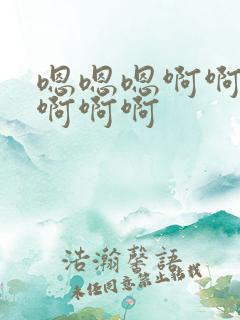 嗯嗯嗯啊啊
啊啊啊
浩瀚馨語
未经同意禁止转载